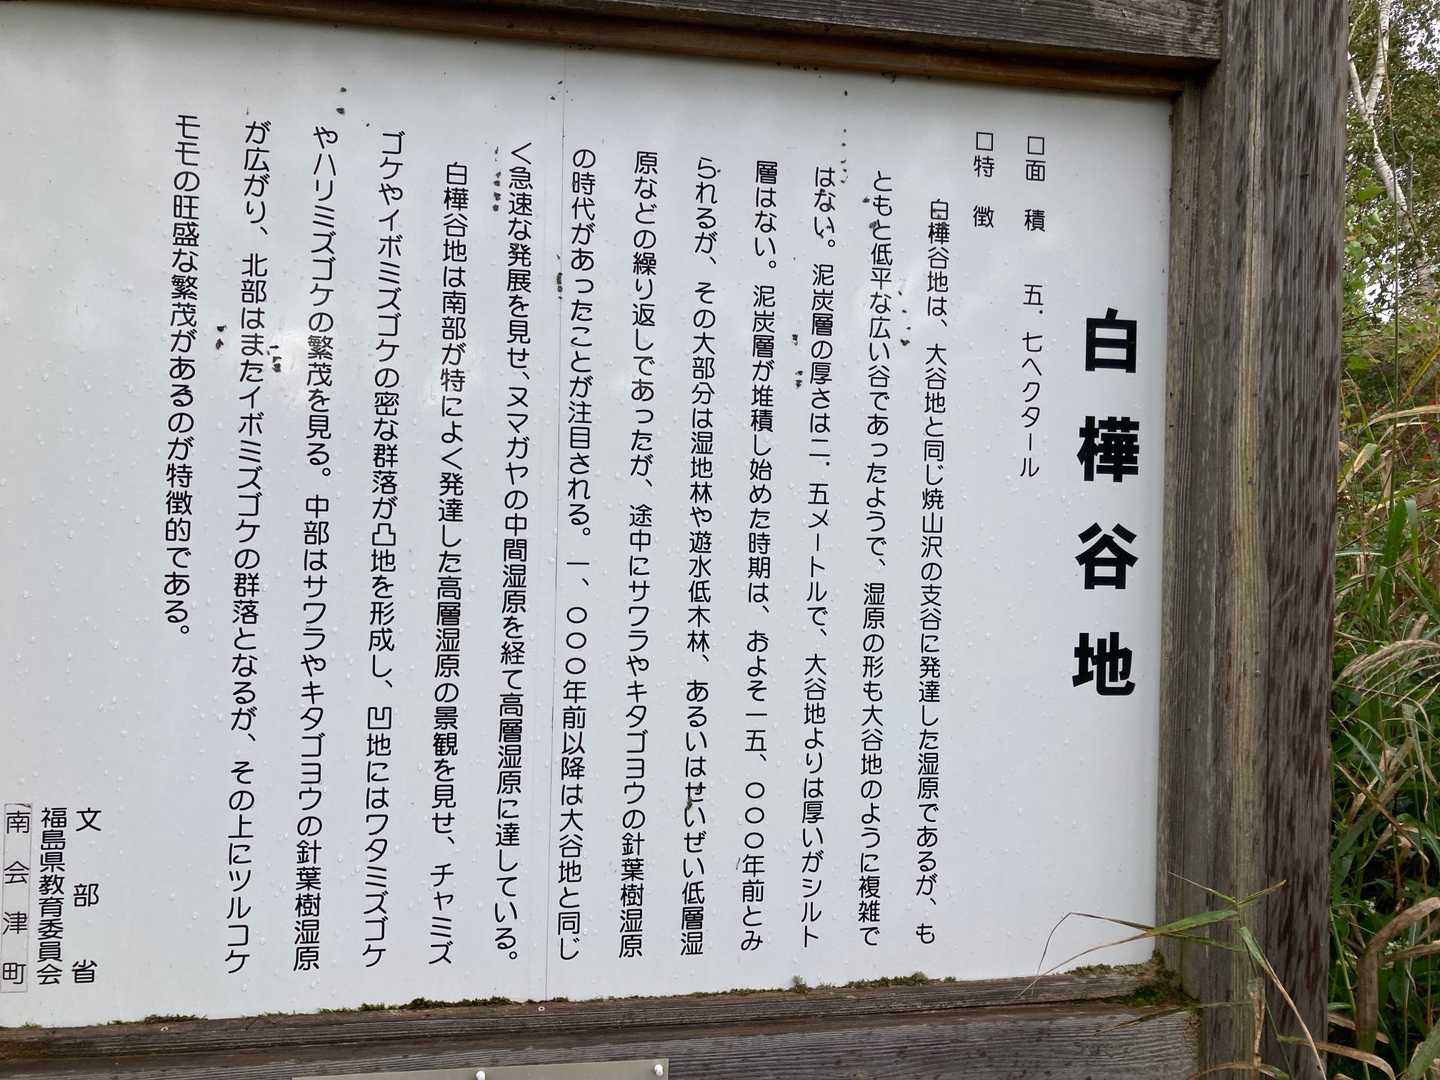 白樺谷地
□面積　五．七ヘクタール
□特徴
白樺谷地は、大谷地と同じ焼山沢の支谷に発達した湿原であるが、も
ともと低平な広い谷であったようで、湿原の形も大谷地のように複雑で
はない。泥炭層の厚さは二．五メートルで、大谷地よりは厚いがシルト
層はない。泥炭層が堆積し始めた時期は、およそ一五、〇〇〇年前とみ
られるが、その大部分は湿地林や遊水低木林、あるいはせいぜい低層湿
原などの繰り返しであったが、途中にサワラやキタゴヨウの針葉樹湿原
の時代があったことが注目される。一、〇〇〇年前以降は大谷地と同じ
く急速な発展を見せ、ヌマガヤの中間湿原を経て高層湿原に達している。
白樺谷地は南部が特によく発達した高層湿原の景観を見せ、チャミズ
ゴケやイボミズゴケの密な群落が凸地を形成し、凹地にはワタミズゴケ
やハリミズゴケの繁茂を見る。中部はサワラやキタゴヨウの針葉樹湿原
が広がり、北部はまたイボミズゴケの群落となるが、その上にツルコケ
モモの旺盛な繁茂があるのが特徴的である。
文部省
福島県教育委員会
南会津町